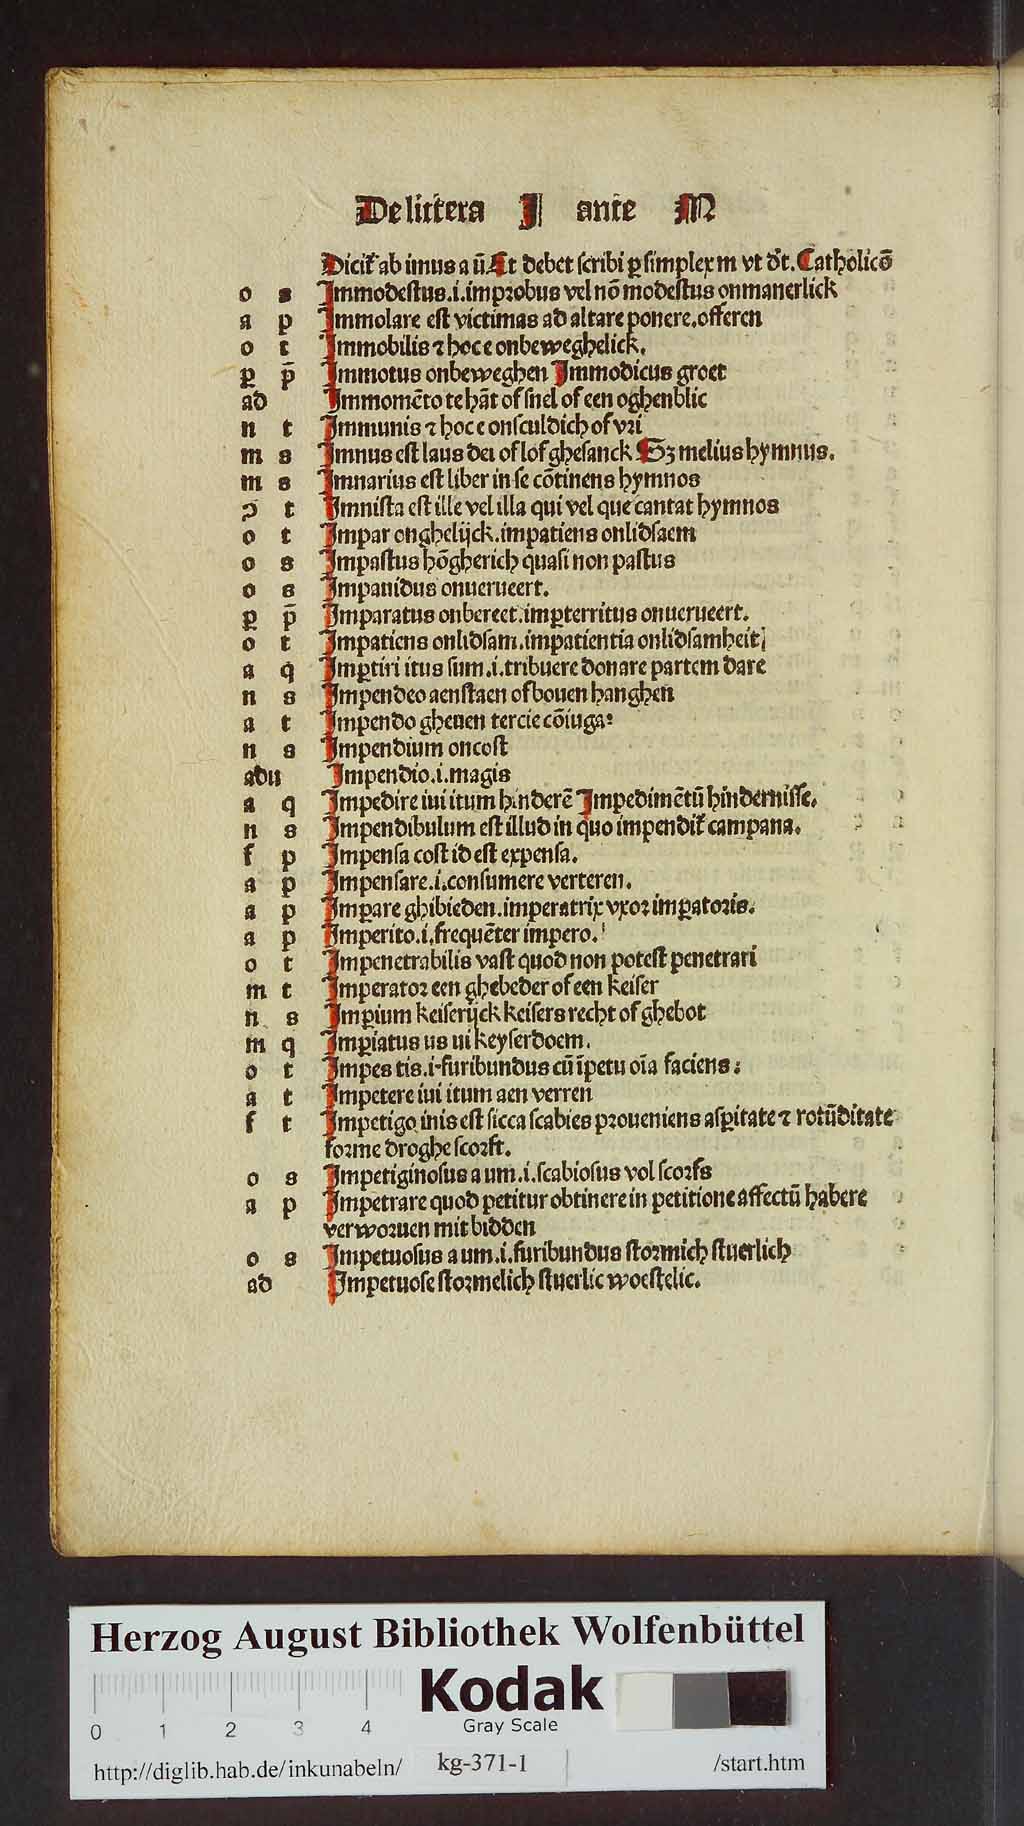 De littera I ante M
Dicit᷑ ab imus a ū. Et debet scribi ꝑ simplex m vt dr̄t. Catholicō
o s Immodestus .i. improbus vel nō modestus onmanerlick
a p Immolare est victimas ad altare ponere. offeren
o t Immobilis ⁊ hoc e onbeweghelick.
ꝑ p̄ Immotus onbeweghen Immodicus groet
ad Immomēto te hāt of snel of een oghenblic
n t Immunis ⁊ hoc e onsculdich of vri
m s Imnus est laus dei of lof ghesanck Sꝫ melius hymnus.
m s Imnarius est liber in se cōtinens hymnos
ꝯ t Imnista est ille vel illa qui vel que cantat hymnos
o t Impar onghelijck. impatiens onlidsaem
o s Impastus hōgherich quasi non pastus
o s Impauidus onuerueert.
ꝑ p̄ Imparatus onbereet. imꝑterritus onuerueert.
o t Impatiens onlidsam. impatientia onlidsamheit
a q Imꝑtiri itus sum .i. tribuere donare partem dare
n s Impendeo aenstaen of bouen hanghen
a t Impendo gheuen tercie cōiuga:
n s Impendium oncost
adu Impendio .i. magis
a q Impedire iui itum hinderē Impedimētū hindernisse.
n s Impendibulum est illud in quo impendit᷑ campana.
f p Impensa cost id est expensa.
a p Impensare .i. consumere verteren.
a p Imꝑare ghibieden. imperatrix vxor imꝑatoris.
a p Imperito .i. frequēter impero.
o t Impenetrabilis vast quod non potest penetrari
m t Imperator een ghebeder of een keiser
n s Imꝑium keiserijck keisers recht of ghebot
m q Imꝑiatus us ui keyserdoem.
o t Impes tis .i. furibundus cū īpetu oīa faciens:
a t Impetere iui itum aen verren
f t Impetigo inis est sicca scabies proueniens asꝑitate ⁊ rotūditate
forme droghe scorft.
o s Impetiginosus a um .i. scabiosus vol scorfs
a p Impetrare quod petitur obtinere in petitione affectū habere
verworuen mit bidden
o s Impetuosus a um .i. furibundus stormich stuerlich
ad Impetuose stormelich stuerlic woestelic.
Herzog August Bibliothek Wolfenbüttel
Kodak
Gray Scale
0 1 2 3 4
http://diglib.hab.de/inkunabeln/ kg-371-1 /start.htm